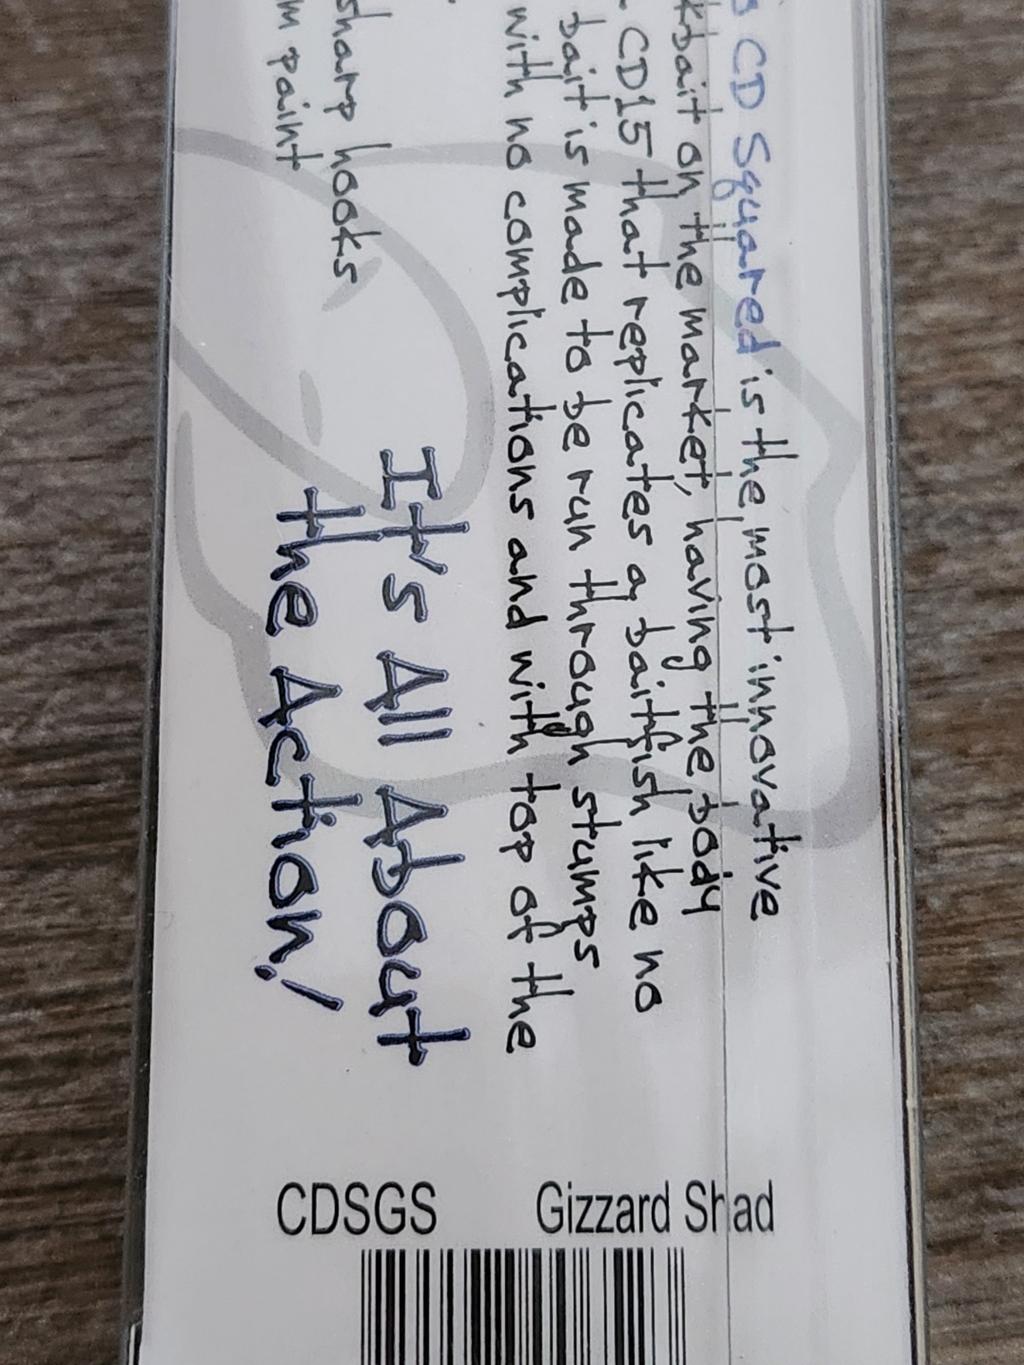 CD Squared is the most innovative
on the market, having the body
CD15 that replicates a baitfish like no
bait is made to be run through stumps
with no complications and with top of the
sharp hooks
paint
It's All About
the Action!
CDSGS Gizzard Shad